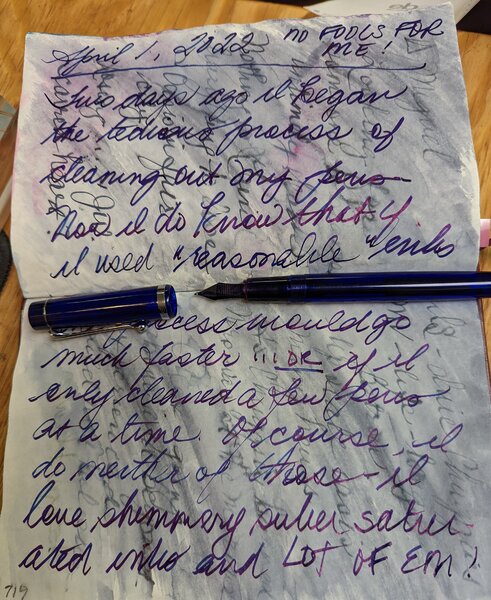 April 1, 2022 NO FOOLS FOR ME!
Two days ago I began
the tedious process of
cleaning out my pens
Now I do know that if
I used "reasonable" inks
process would go
much faster ... OR if I
only cleaned a few pens
at a time. Of course, I
do neither of those - I
love shimmery super satur-
ated inks and LOT OF EM!
719